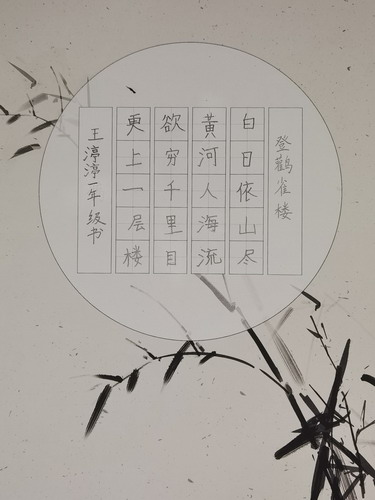 登鹳雀楼
白日依山尽
黄河人海流
欲穷千里目
更上一层楼
王渟渟一年级书